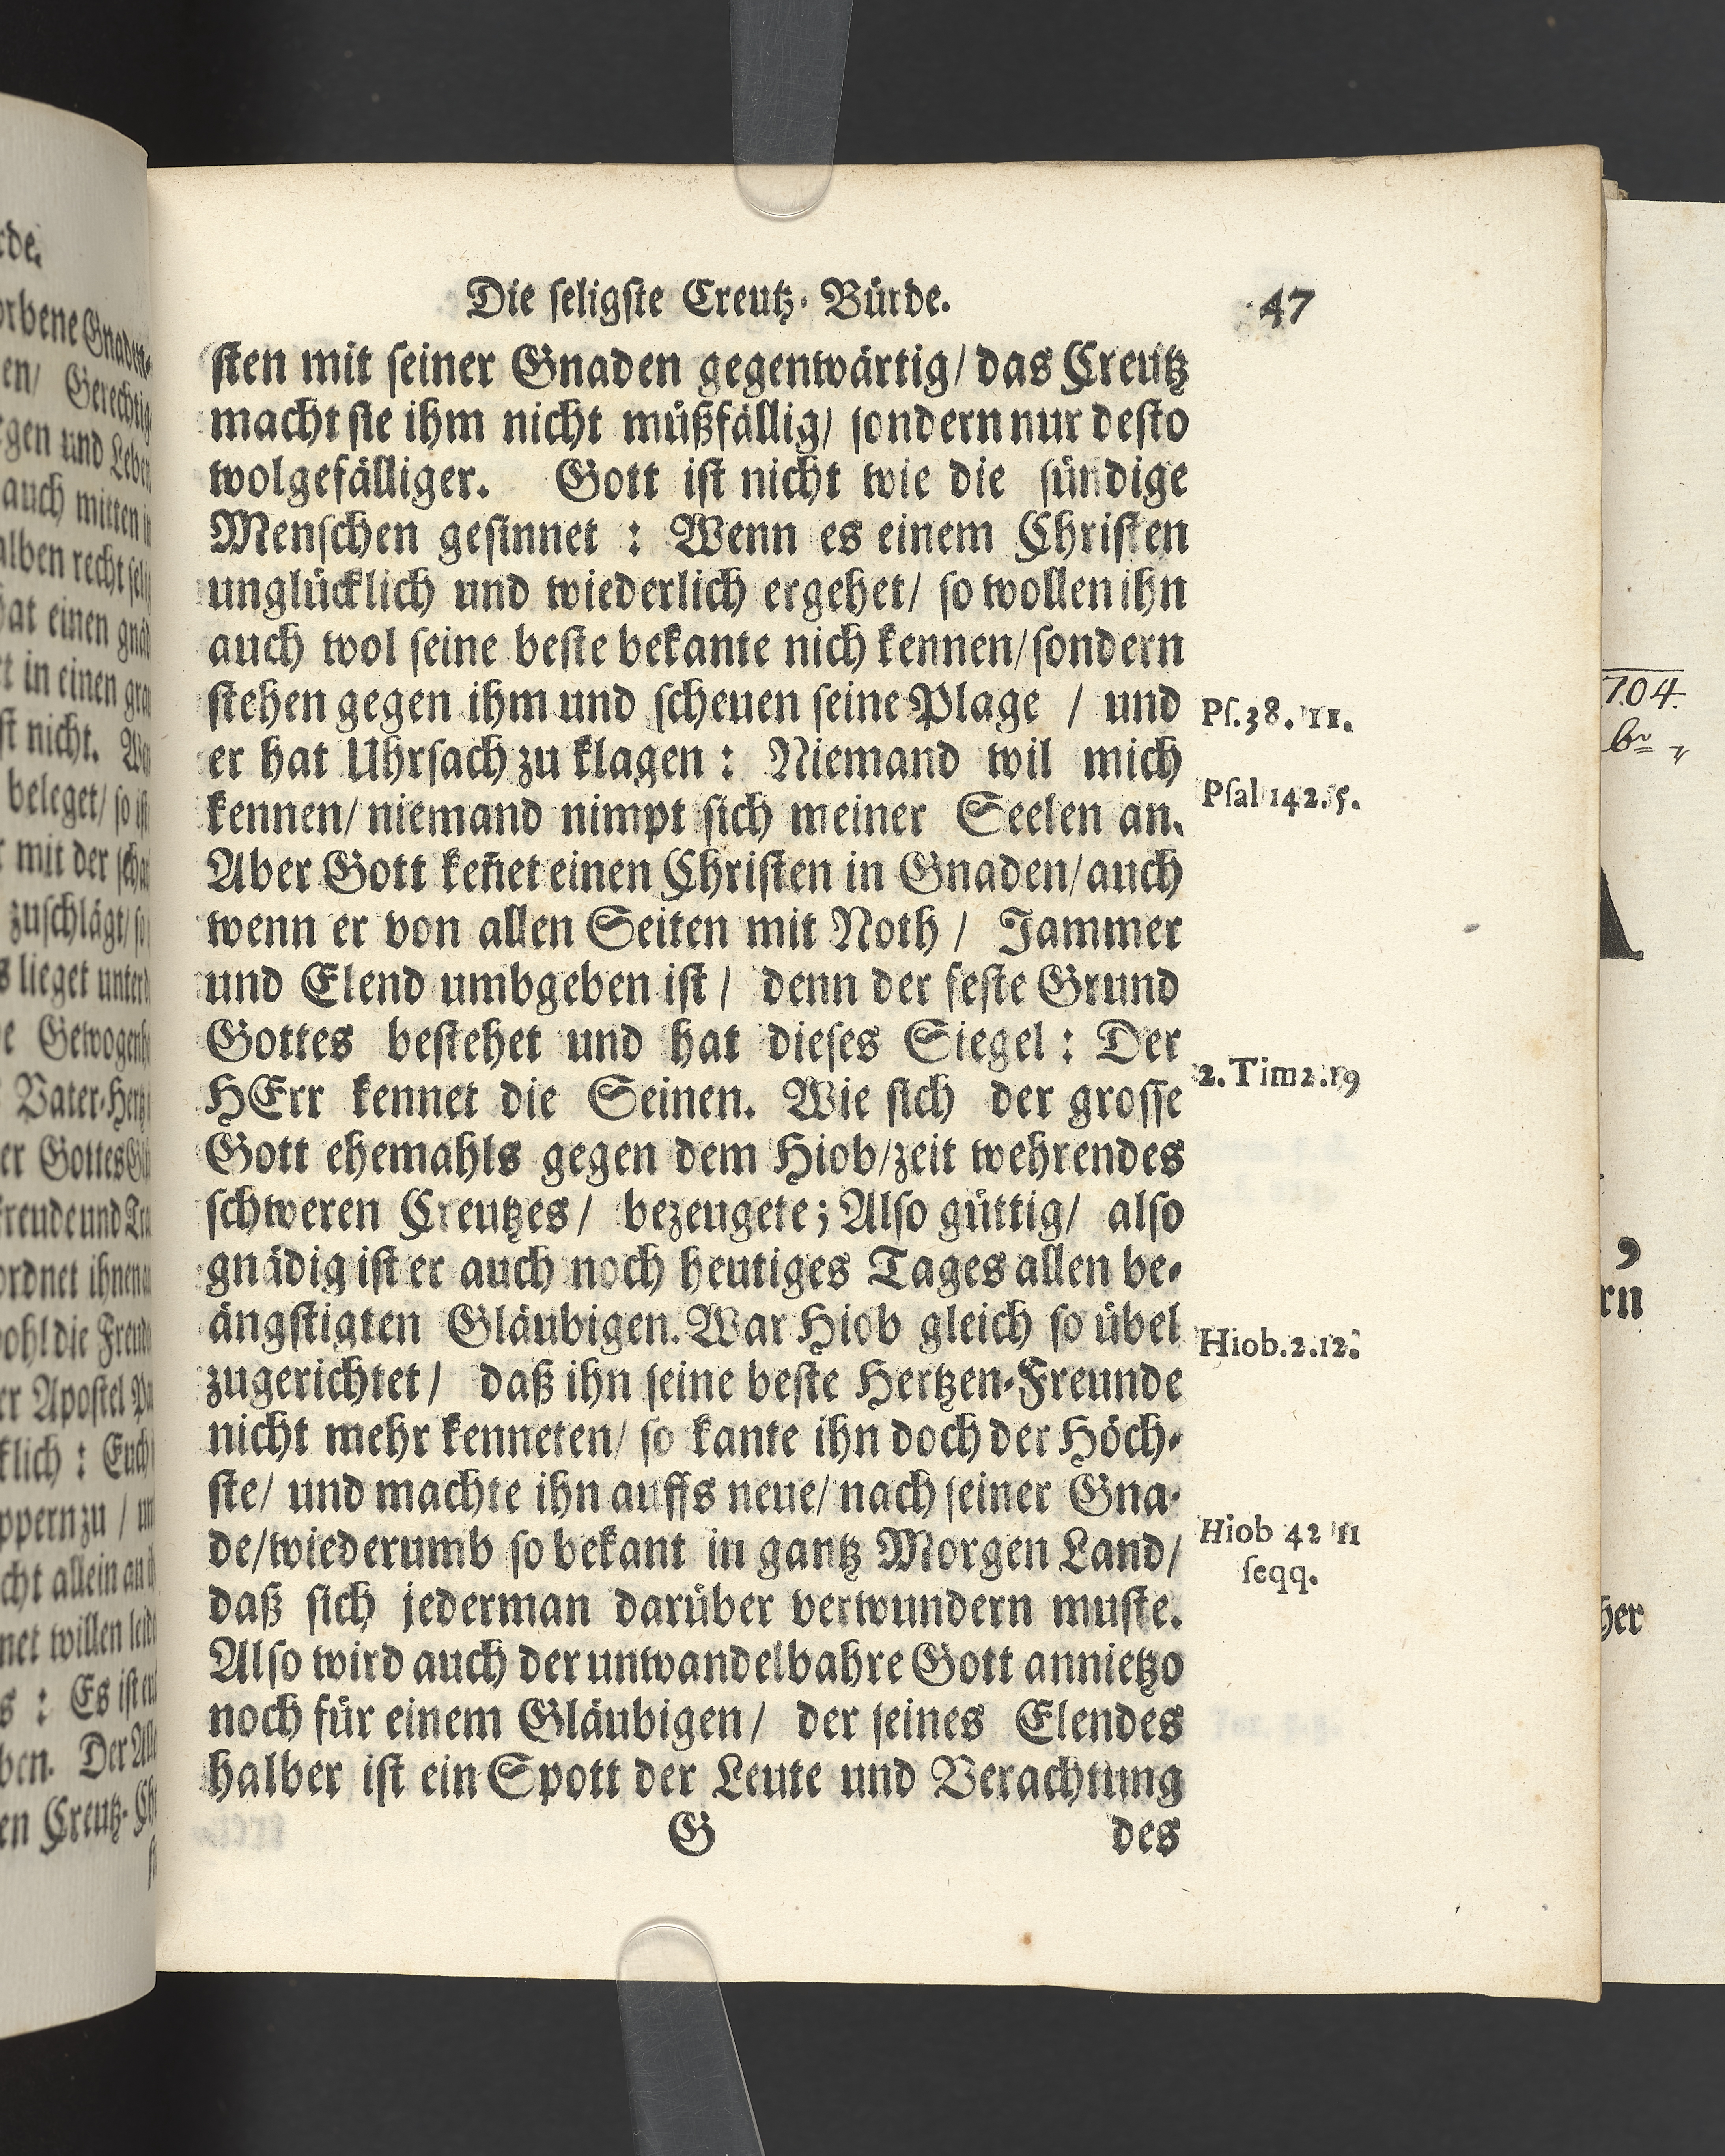 Die ſeligſte Creutz-Bürde. 47
ſten mit ſeiner Gnaden gegenwärtig/ das Creutz
macht ſie ihm nicht müßfällig/ ſondern nur deſto
wolgefälliger. Gott iſt nicht wie die ſündige
Menſchen geſinnet : Wenn es einem Chriſten
unglücklich und wiederlich ergehet/ ſo wollen ihn
auch wol ſeine beſte bekante nich kennen/ ſondern
ſtehen gegen ihm und ſcheuen ſeine Plage / und
Pſ.38. 11.
er hat Uhrſach zu klagen : Niemand wil mich
Pſal 142.5.
kennen/ niemand nimpt ſich meiner Seelen an.
Aber Gott keñet einen Chriſten in Gnaden/ auch
wenn er von allen Seiten mit Noth / Jammer
und Elend umbgeben iſt / denn der feſte Grund
Gottes beſtehet und hat dieſes Siegel : Der
2. Tim2.19
HErr kennet die Seinen. Wie ſich der groſſe
Gott ehemahls gegen dem Hiob/ zeit wehrendes
ſchweren Creutzes/ bezeugete; Alſo güttig/ alſo
gnädig iſt er auch noch heutiges Tages allen be-
ängſtigten Gläubigen. War Hiob gleich ſo übel
Hiob.2.12.
zugerichtet/ daß ihn ſeine beſte Hertzen-Freunde
nicht mehr kenneten/ ſo kante ihn doch der Höch-
ſte/ und machte ihn auffs neue/ nach ſeiner Gna-
Hiob 42 11
de/ wiederumb ſo bekant in gantz Morgen Land/
ſeqq.
daß ſich jederman darüber verwundern muſte.
Alſo wird auch der unwandelbahre Gott annietzo
noch für einem Gläubigen/ der ſeines Elendes
halber iſt ein Spott der Leute und Verachtung
G des